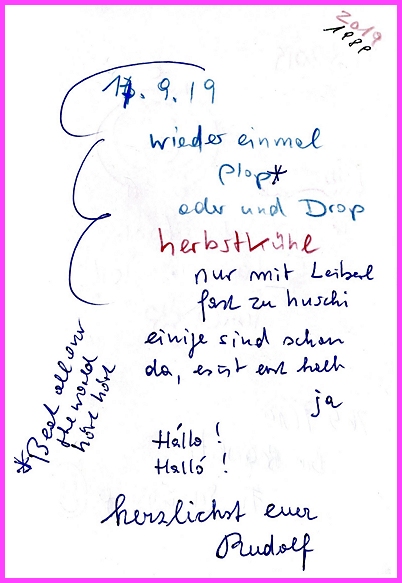 2019
1999
17. 9. 19
wieder einmal
Plop*
oder und Drop
herbstkühl
nur mit Leiberl
fast zu huschi
einige sind schon
da, es ist erst halb
ja
Hállo !
Halló !
herzlichst euer
Rudolf
*Beat all over
the world